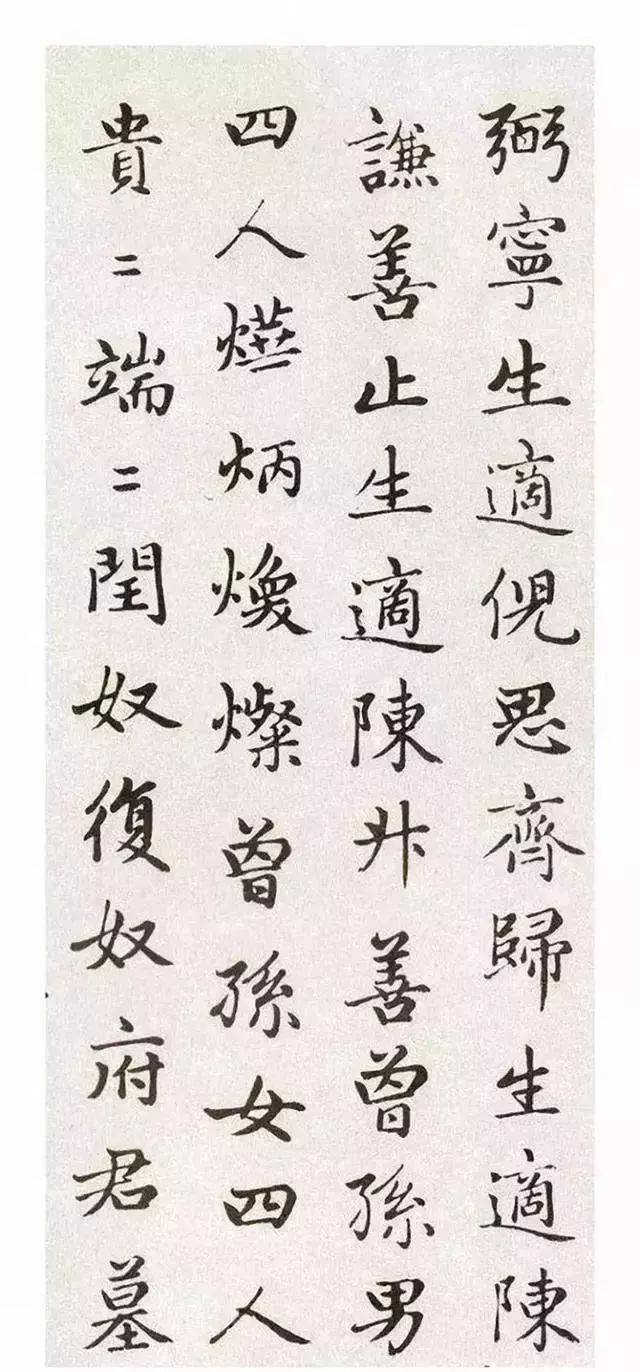 弼寧生適倪思齊歸生適陳
謙善止生適陳廾善曾孫男
四人燁炳煥燦曾孫女四人
貴〻端〻閏奴復奴府君墓